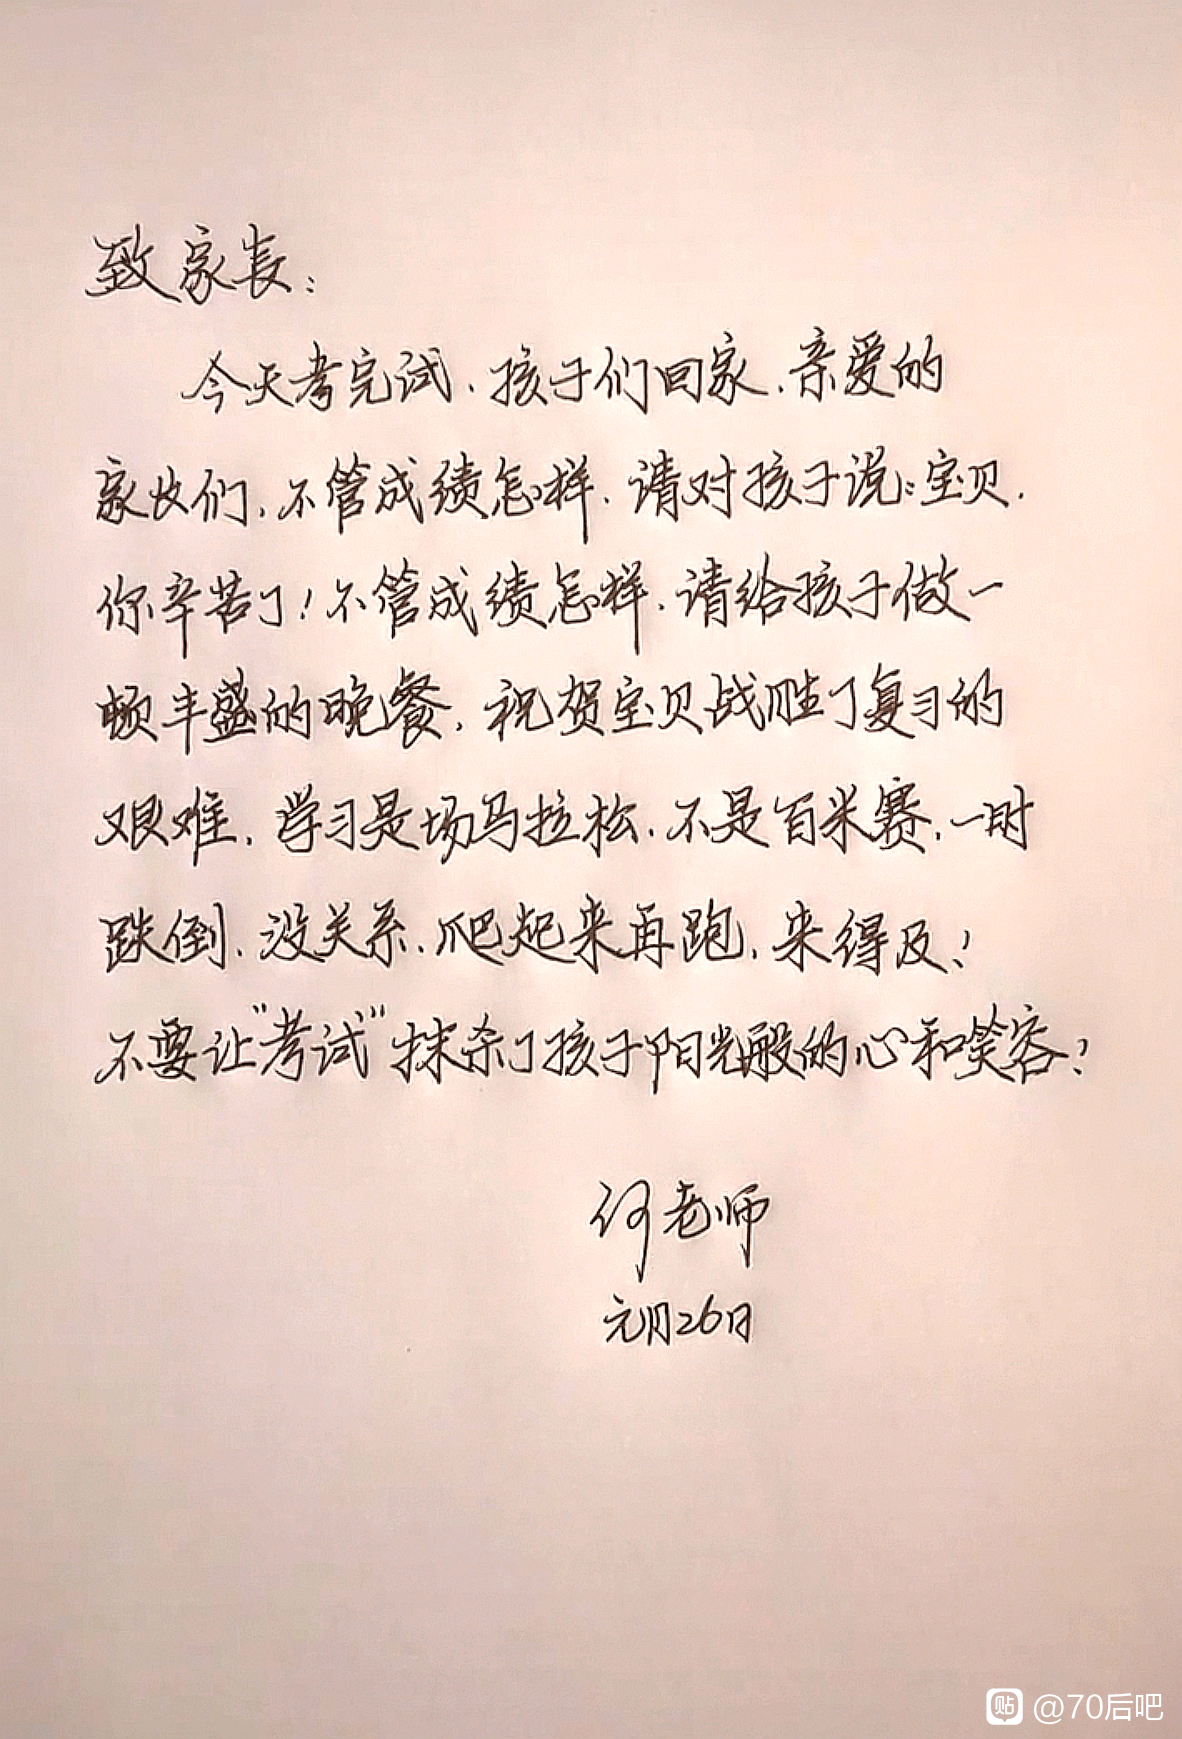 致家长：
今天考完试，孩子们回家，亲爱的
家长们，不管成绩怎样，请对孩子说：宝贝，
你辛苦了！不管成绩怎样，请给孩子做一
顿丰盛的晚餐，祝贺宝贝战胜了复习的
艰难，学习是场马拉松，不是百米赛，一时
跌倒，没关系，爬起来再跑，来得及！
不要让"考试"抹杀了孩子阳光般的心和笑容！
何老师
元月26日
贴 @70后吧